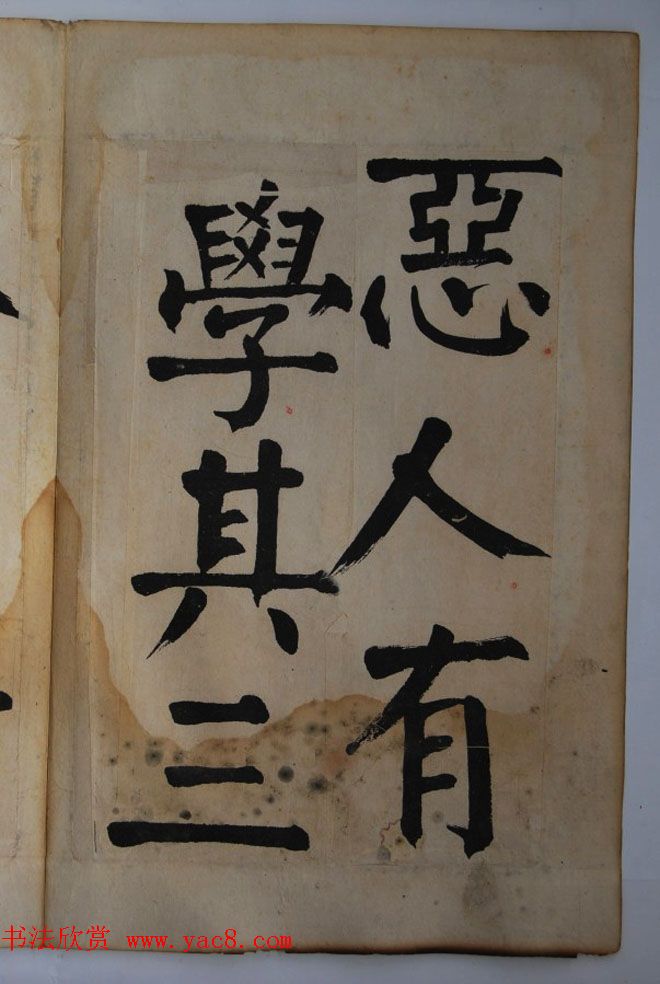 惡人有
學其三
书法欣赏 www.yac8.com